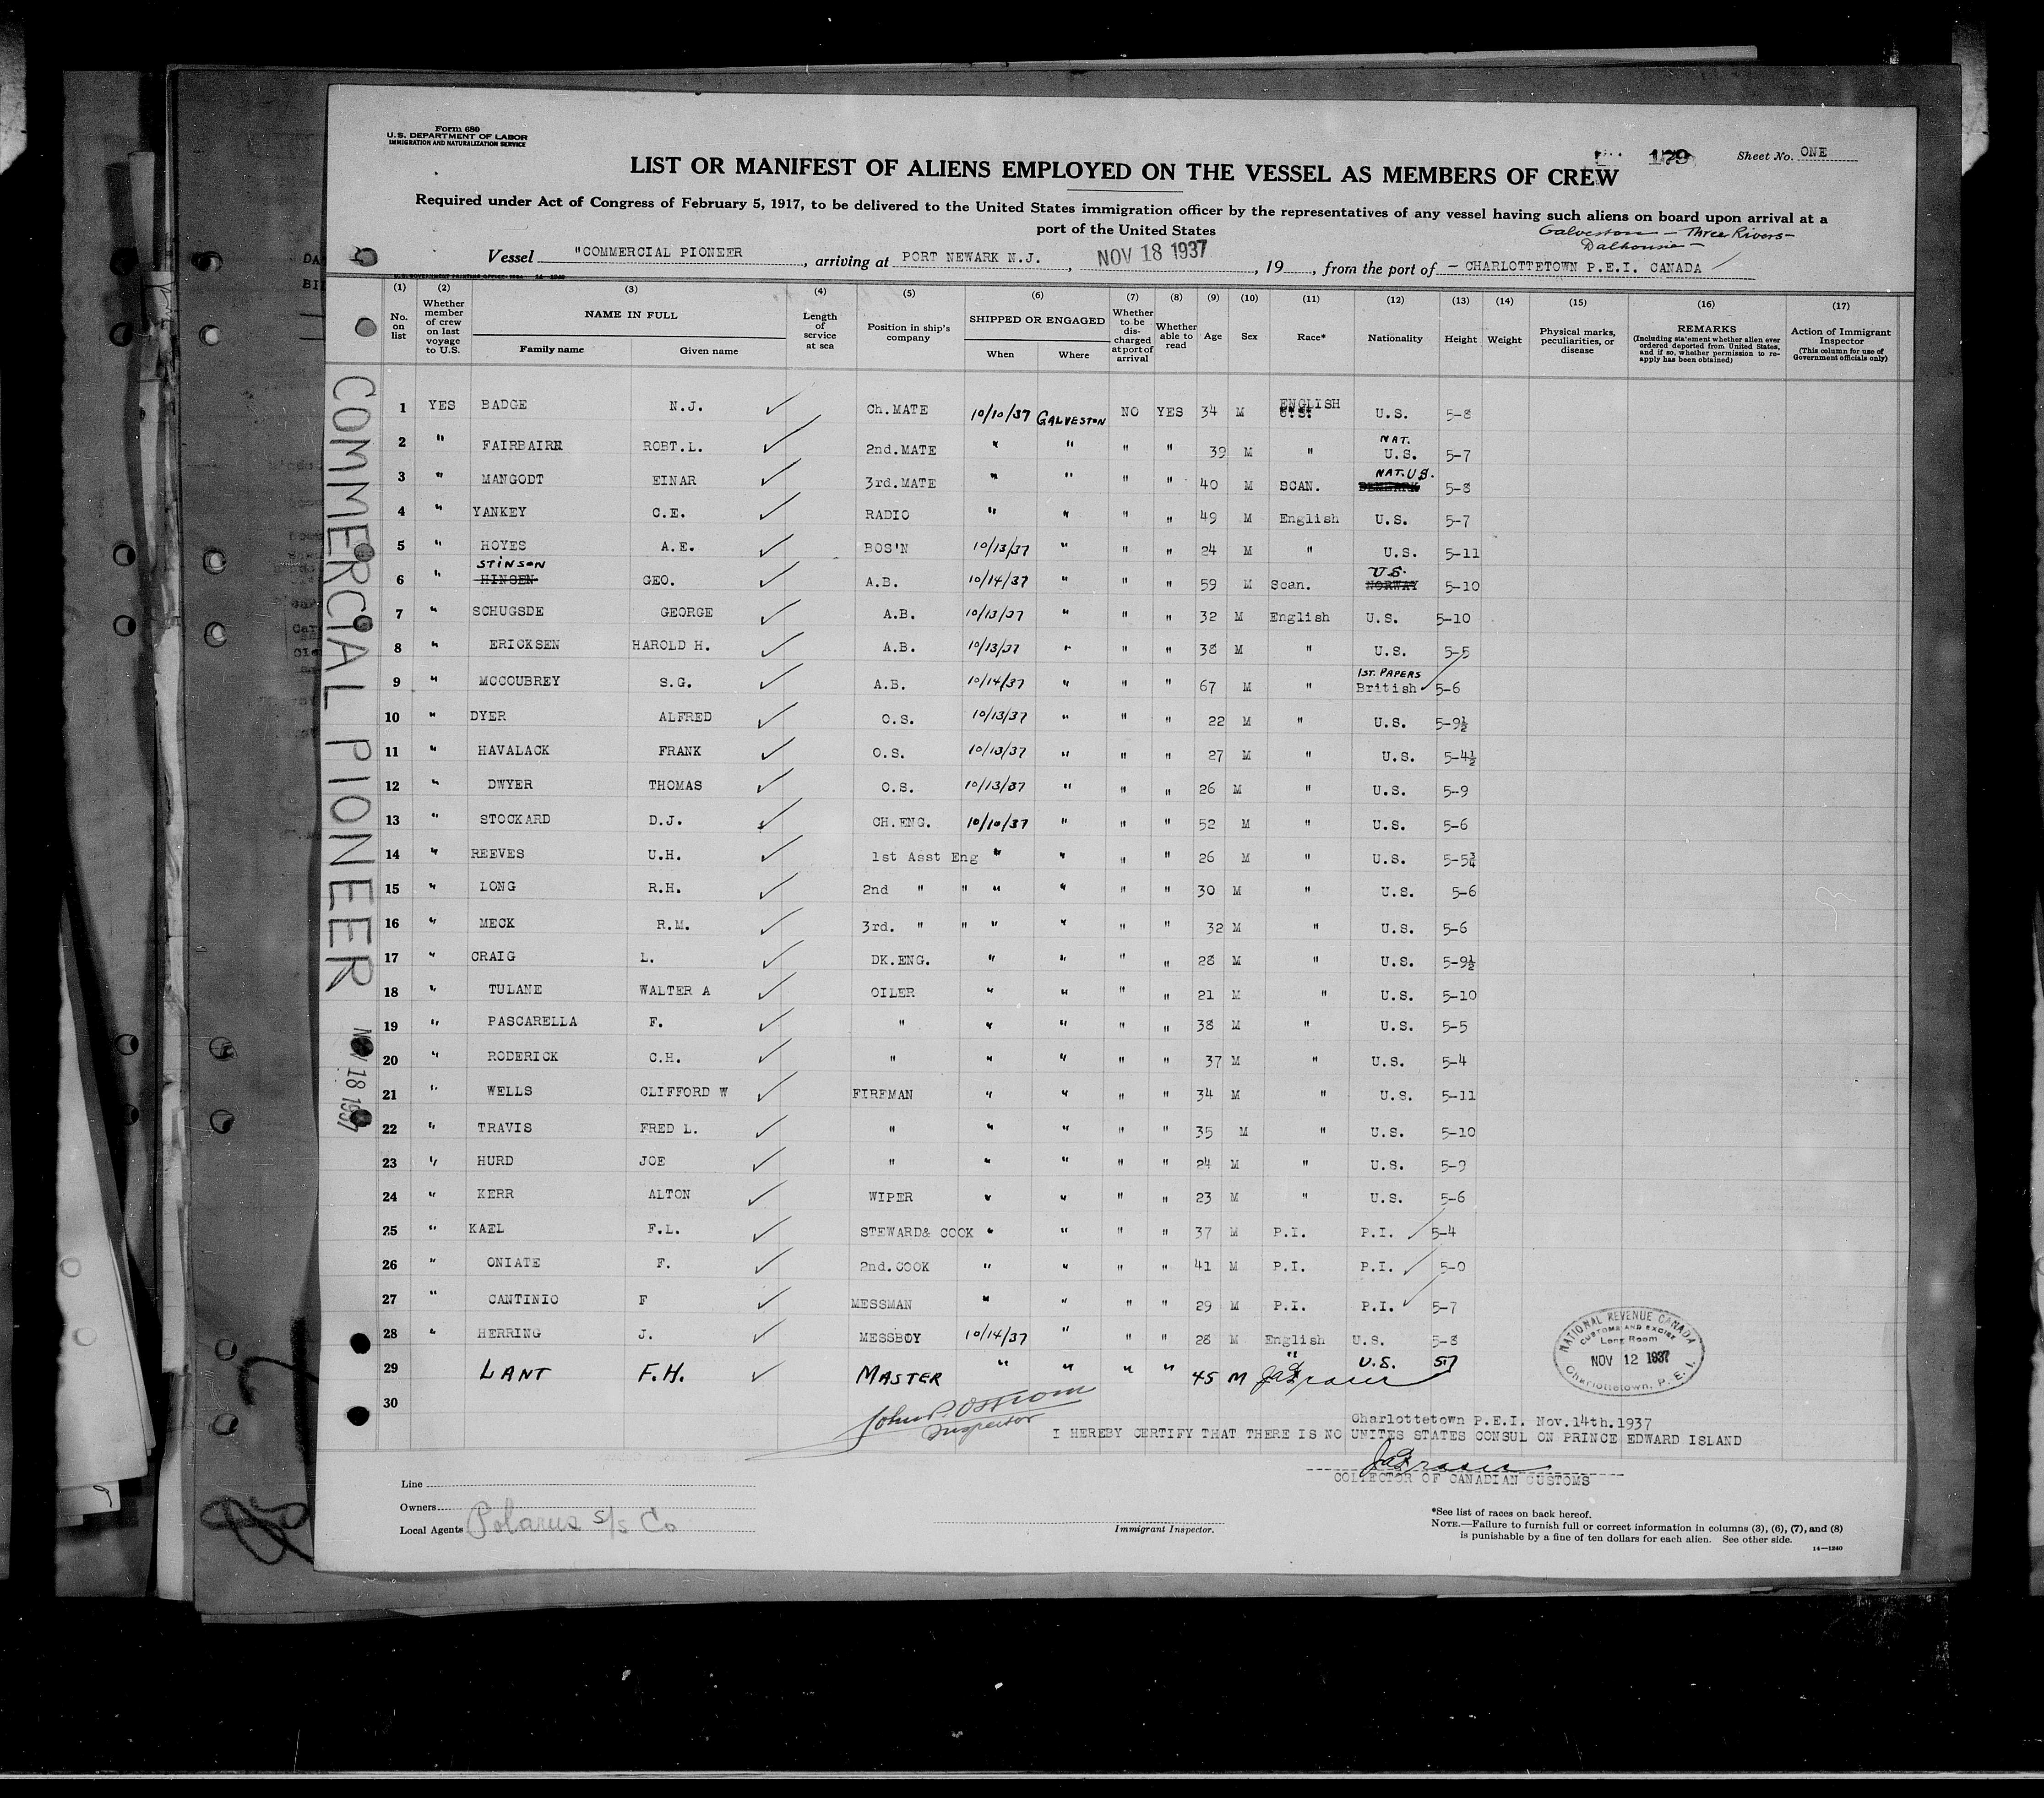 Form 680
U.S. DEPARTMENT OF LABOR
IMMIGRATION AND NATURALIZATION SERVICE
179
Sheet No. ONE
LIST OR MANIFEST OF ALIENS EMPLOYED ON THE VESSEL AS MEMBERS OF CREW
Required under Act of Congress of February 5, 1917, to be delivered to the United States immigration officer by the representatives of any vessel having such aliens on board upon arrival at a
port of the United States
Galveston — Three Rivers —
Dalhousie —
Vessel "COMMERCIAL PIONEER, arriving at PORT NEWARK N.J., NOV 18 1937, 19, from the port of - CHARLOTTETOWN P.E.I. CANADA
(1) (2) (3) (4) (5) (6) (7) (8) (9) (10) (11) (12) (13) (14) (15) (16) (17)
No. on list
Whether member of crew on last voyage to U.S.
NAME IN FULL
Family name Given name
Length of service at sea
Position in ship's company
SHIPPED OR ENGAGED
When Where
Whether to be discharged at port of arrival
Whether able to read
Age Sex Race* Nationality Height Weight
Physical marks, peculiarities, or disease
REMARKS
(Including statement whether alien ever ordered deported from United States, and if so, whether permission to re-apply has been obtained)
Action of Immigrant Inspector
(This column for use of Government officials only)
1 YES BADGE N.J. Ch.MATE 10/10/37 GALVESTON NO YES 34 M ENGLISH U.S. 5-8
2 " FAIRBAIRR ROBT.L. 2nd.MATE " " " " 39 M " NAT. U.S. 5-7
3 " MANGODT EINAR 3rd.MATE " " " " 40 M SCAN. NAT. U.S. DENMARK 5-8
4 " YANKEY C.E. RADIO " " " " 49 M English U.S. 5-7
5 " HOYES A.E. BOS'N 10/13/37 " " " 24 M " U.S. 5-11
6 " STINSON HINSEN GEO. A.B. 10/14/37 " " " 59 M Scan. U.S. NORWAY 5-10
7 " SCHUGSDE GEORGE A.B. 10/13/37 " " " 32 M English U.S. 5-10
8 " ERICKSEN HAROLD H. A.B. 10/13/37 " " " 38 M " U.S. 5-5
9 " MCCOUBREY S.G. A.B. 10/14/37 " " " 67 M " 1ST. PAPERS British 5-6
10 " DYER ALFRED O.S. 10/13/37 " " " 22 M " U.S. 5-9½
11 " HAVALACK FRANK O.S. 10/13/37 " " " 27 M " U.S. 5-4½
12 " DWYER THOMAS O.S. 10/13/37 " " " 26 M " U.S. 5-9
13 " STOCKARD D.J. CH.ENG. 10/10/37 " " " 52 M " U.S. 5-6
14 " REEVES U.H. 1st Asst Eng " " " " 26 M " U.S. 5-5¾
15 " LONG R.H. 2nd " " " " " " 30 M " U.S. 5-6
16 " MECK R.M. 3rd. " " " " " " 32 M " U.S. 5-6
17 " CRAIG L. DK.ENG. " " " " 28 M " U.S. 5-9½
18 " TULANE WALTER A OILER " " " " 21 M " U.S. 5-10
19 " PASCARELLA F. " " " " " 38 M " U.S. 5-5
20 " RODERICK C.H. " " " " " 37 M " U.S. 5-4
21 " WELLS CLIFFORD W FIREMAN " " " " 34 M " U.S. 5-11
22 " TRAVIS FRED L. " " " " " 35 M " U.S. 5-10
23 " HURD JOE " " " " " 24 M " U.S. 5-9
24 " KERR ALTON WIPER " " " " 23 M " U.S. 5-6
25 " KAEL F.L. STEWARD& COOK " " " " 37 M P.I. P.I. 5-4
26 " ONIATE F. 2nd.COOK " " " " 41 M P.I. P.I. 5-0
27 " CANTINIO F MESSMAN " " " " 29 M P.I. P.I. 5-7
28 " HERRING J. MESSBOY 10/14/37 " " " 28 M English U.S. 5-8
29 LANT F.H. MASTER " " " " 45 M " U.S. 57
30
COMMERCIAL PIONEER
NOV 18 1937
NATIONAL REVENUE CANADA
CUSTOMS AND EXCISE
Long Room
NOV 12 1937
Charlottetown, P.E.I.
Inspector
Charlottetown P.E.I. Nov.14th.1937
I HEREBY CERTIFY THAT THERE IS NO UNITES STATES CONSUL ON PRINCE EDWARD ISLAND
COLLECTOR OF CANADIAN CUSTOMS
Line
Owners
Local Agents Polarus S/S Co
Immigrant Inspector.
*See list of races on back hereof.
NOTE.—Failure to furnish full or correct information in columns (3), (6), (7), and (8)
is punishable by a fine of ten dollars for each alien. See other side.
14—1240